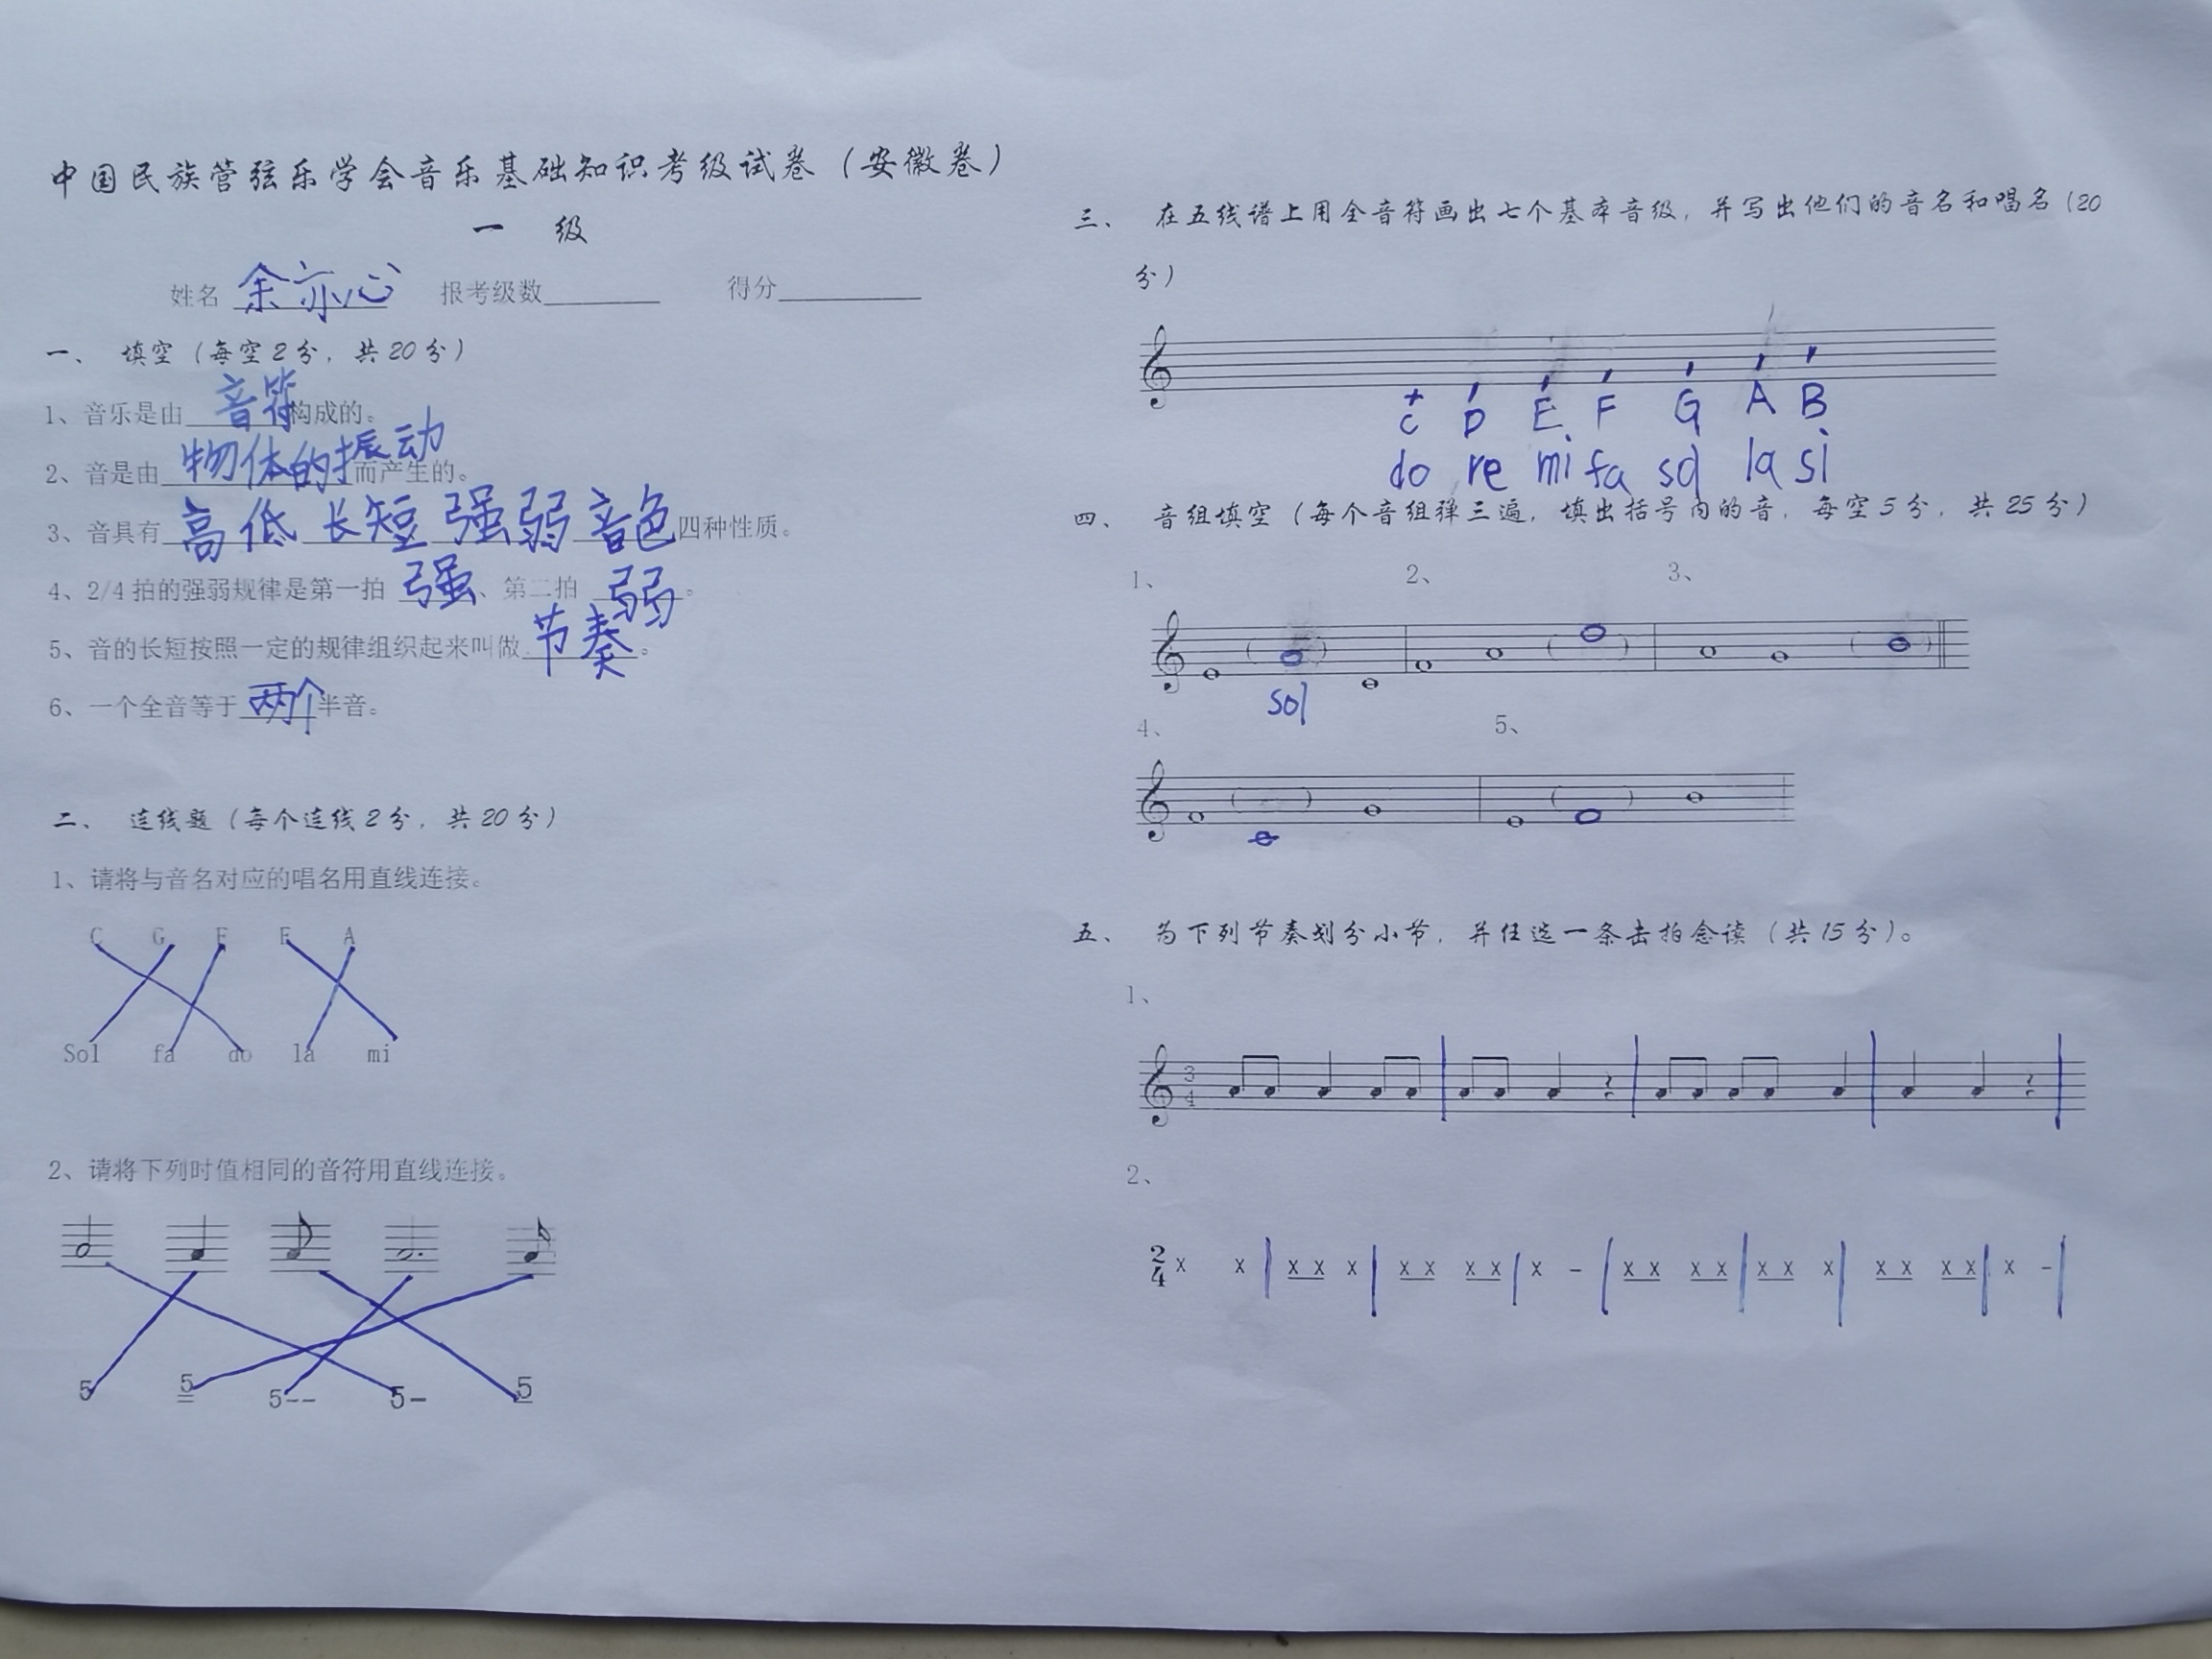 中国民族管弦乐学会音乐基础知识考级试卷（安徽卷）
一 级
姓名 余亦心 报考级数________ 得分________
一、 填空（每空2分，共20分）
1、音乐是由 音符 构成的。
2、音是由 物体的振动 而产生的。
3、音具有 高低 长短 强弱 音色 四种性质。
4、2/4拍的强弱规律是第一拍 强 、第二拍 弱 。
5、音的长短按照一定的规律组织起来叫做 节奏 。
6、一个全音等于 两个 半音。
二、 连线题（每个连线2分，共20分）
1、请将与音名对应的唱名用直线连接。
C G F E A
Sol fa do la mi
2、请将下列时值相同的音符用直线连接。
5 5 5-- 5- 5
三、 在五线谱上用全音符画出七个基本音级，并写出他们的音名和唱名（20
分）
C D E F G A B
do re mi fa sol la si
四、 音组填空（每个音组弹三遍，填出括号内的音，每空5分，共25分）
1、 2、 3、
( ) ( ) ( )
sol
4、 5、
( ) ( )
五、 为下列节奏划分小节，并任选一条击拍念读（共15分）。
1、
3
4
2、
2/4 X X | X X X | X X X X | X - | X X X X | X X X | X X X X | X - |